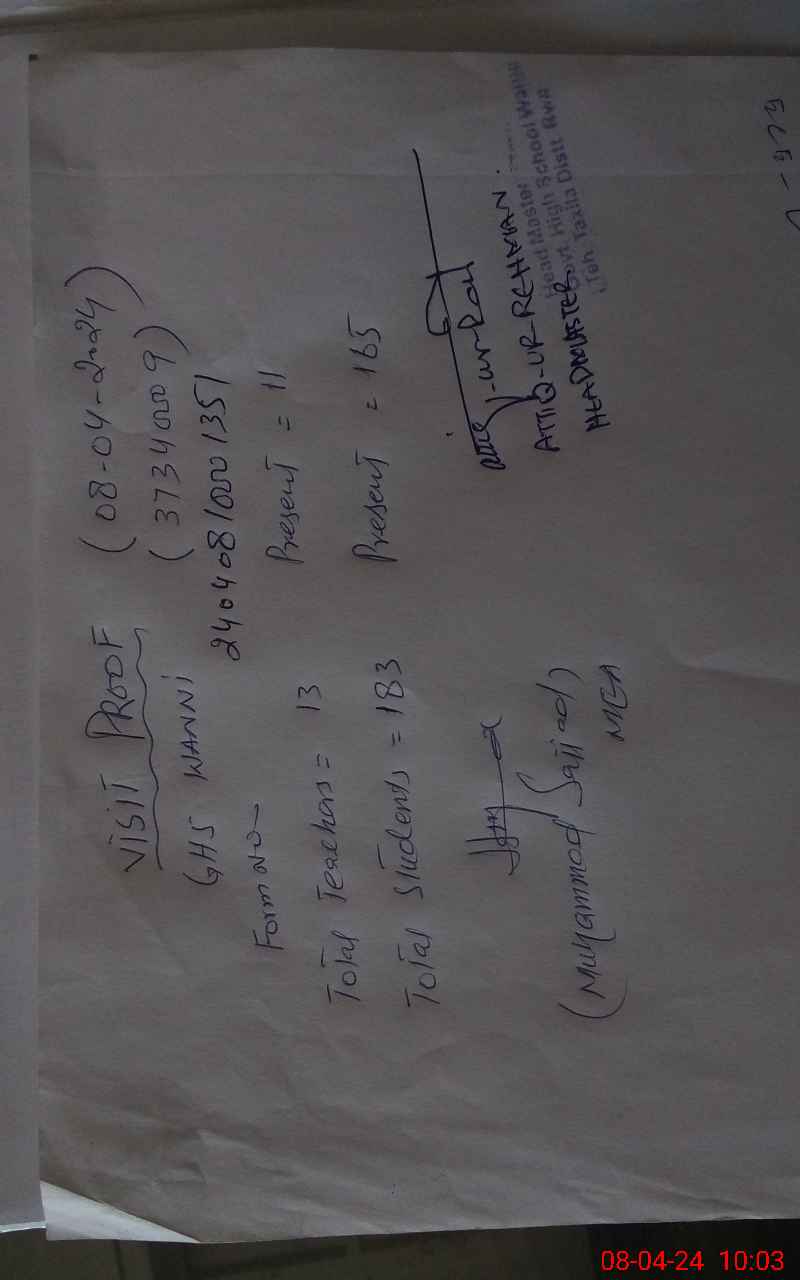 VISIT PROOF (08-04-2024)
GHS WANNI (37340009)
Form No- 24040810001351
Total Teachers = 13 Present = 11
Total Students = 183 Present = 165
(Muhammad Sajjad)
MEA
ATTIQ-UR-REHMAN
HEADMASTER
Head Master
Govt. High School Wanni
Teh. Taxila Distt Rwp
08-04-24 10:03